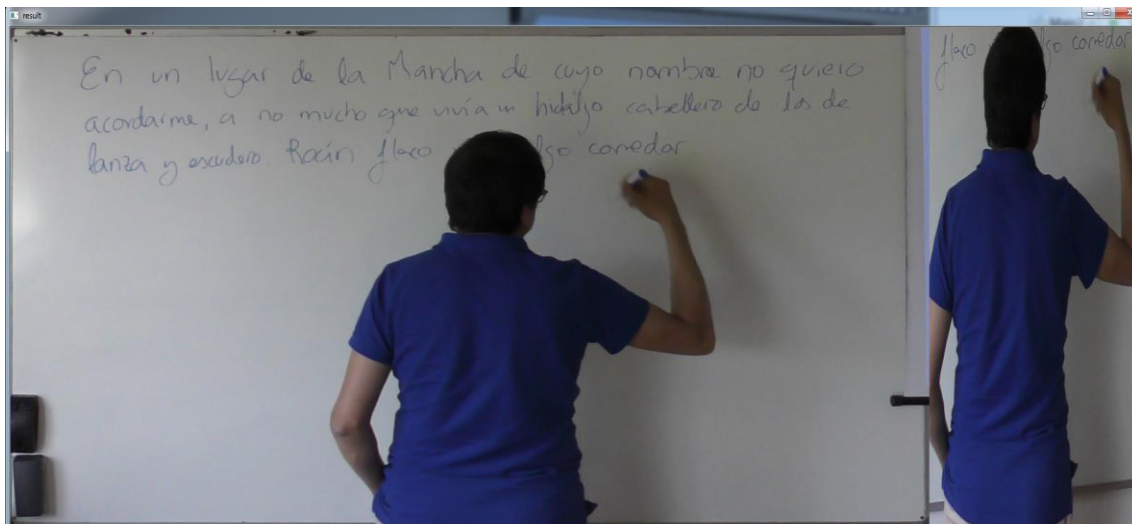 result
En un lugar de la Mancha de cuyo nombre no quiero
acordarme, a no mucho que vivía un hidalgo caballero de los de
lanza y escudero. Rocín flaco corredor
flaco corredor